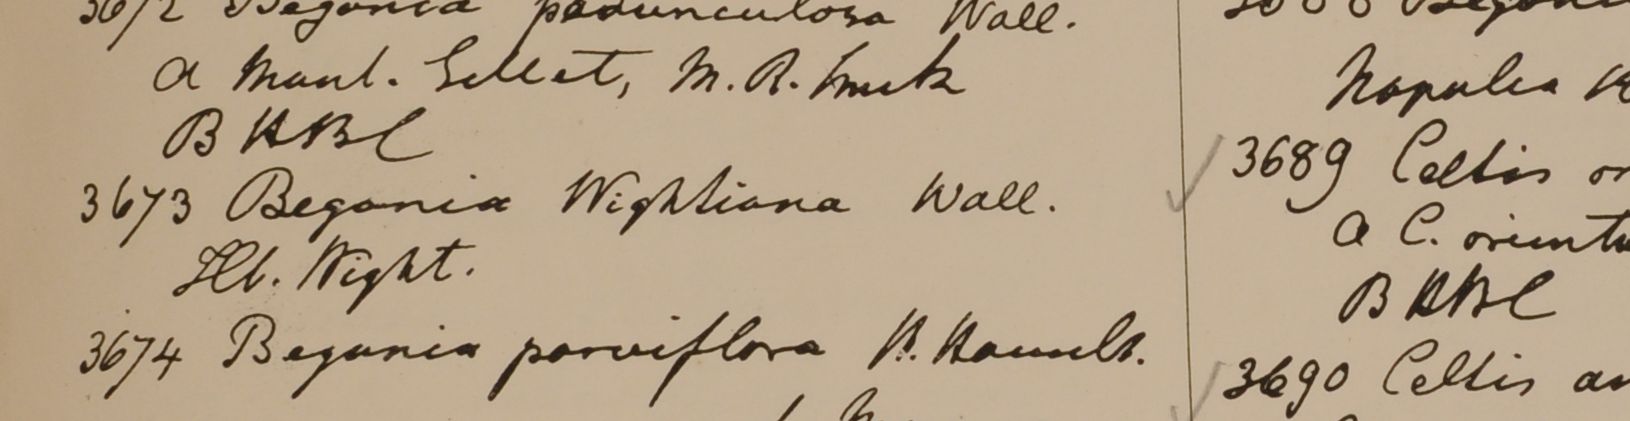 3672 Begonia pedunculosa Wall.
a Mont. Sillet, M. R. Smith
B HBC
3673 Begonia Wightiana Wall.
Hb. Wight.
3674 Begonia parviflora H. Hamilt.
Napalia
3689 Celtis
a C. orient
B HBC
3690 Celtis